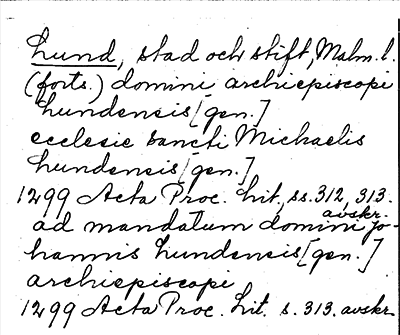 Lund, stad och stift, Malm. l.
(forts.) domini archiepiscopi
Lundensis [gen.]
ecclesie sancti Michaelis
Lundensis [gen.]
1299 Acta Proc. Lit. ss. 312, 313.
avskr.
ad mandatum domini Jo-
hannis Lundensis [gen.]
archiepiscopi
1299 Acta Proc. Lit. s. 313. avskr.